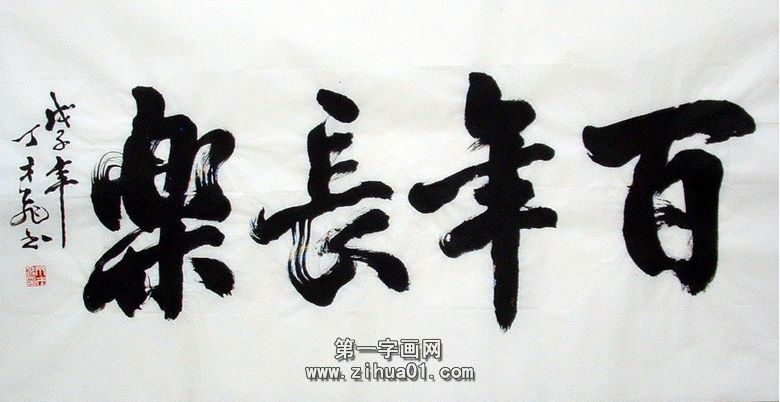 百年長樂
戊子年
丁才飛書
第一字画网
www.zihua01.com